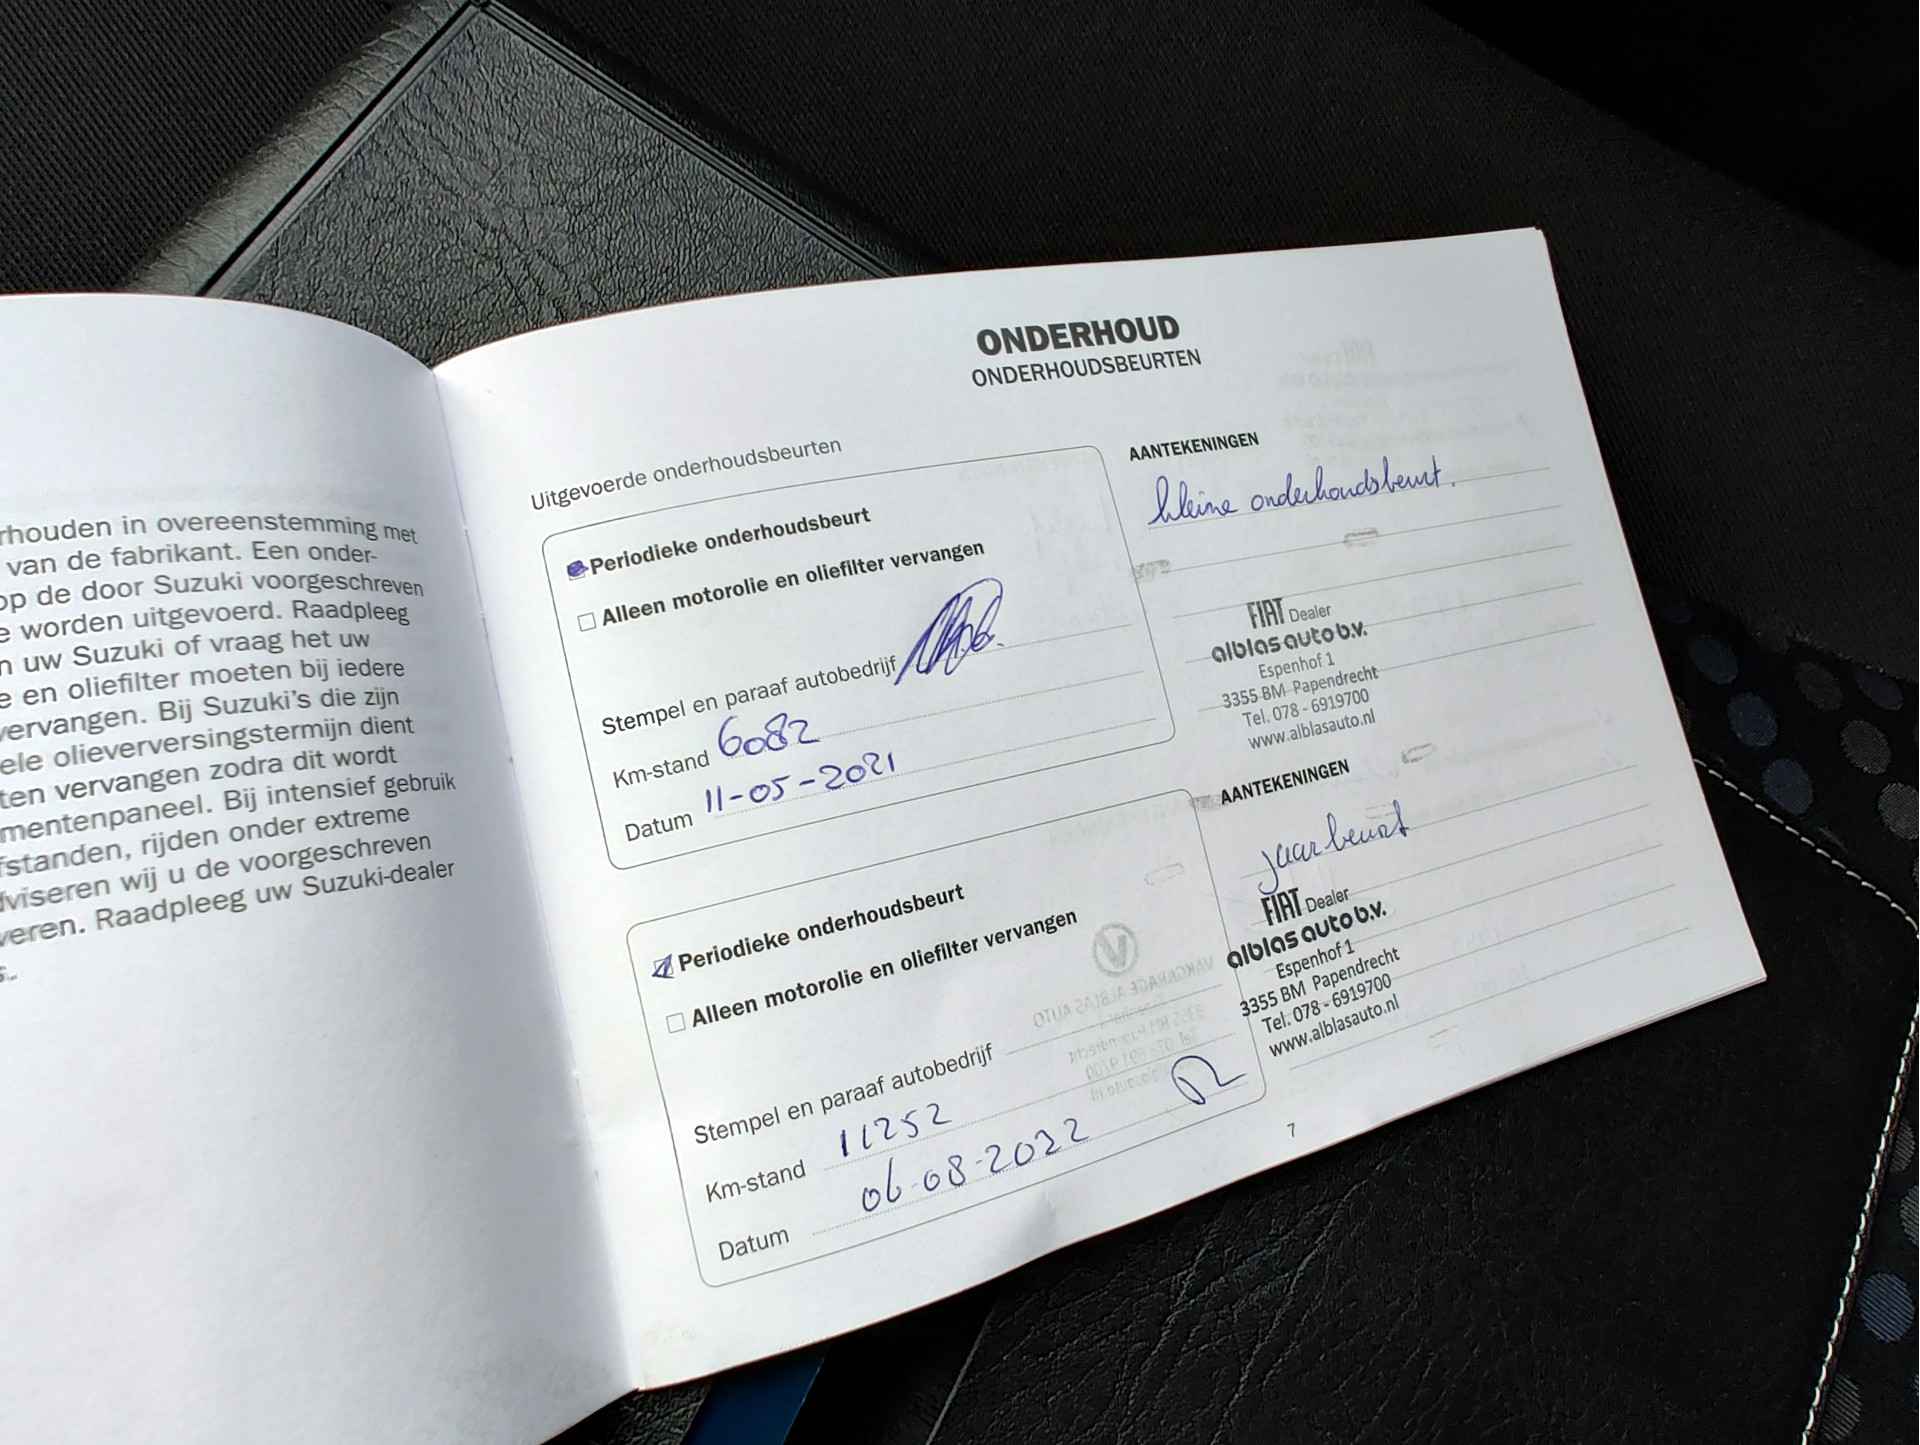 rhouden in overeenstemming met
van de fabrikant. Een onder-
op de door Suzuki voorgeschreven
e worden uitgevoerd. Raadpleeg
n uw Suzuki of vraag het uw
e en oliefilter moeten bij iedere
vervangen. Bij Suzuki's die zijn
ele olieverversingstermijn dient
ten vervangen zodra dit wordt
mentenpaneel. Bij intensief gebruik
fstanden, rijden onder extreme
dviseren wij u de voorgeschreven
veren. Raadpleeg uw Suzuki-dealer
s.
ONDERHOUD
ONDERHOUDSBEURTEN
Uitgevoerde onderhoudsbeurten
Periodieke onderhoudsbeurt
Alleen motorolie en oliefilter vervangen
Stempel en paraaf autobedrijf
Km-stand 6082
Datum 11-05-2021
AANTEKENINGEN
kleine onderhoudsbeurt.
FIAT Dealer
alblas auto b.v.
Espenhof 1
3355 BM Papendrecht
Tel. 078 - 6919700
www.alblasauto.nl
Periodieke onderhoudsbeurt
Alleen motorolie en oliefilter vervangen
Stempel en paraaf autobedrijf
Km-stand 11252
Datum 06-08-2022
AANTEKENINGEN
jaarbeurt
FIAT Dealer
alblas auto b.v.
Espenhof 1
3355 BM Papendrecht
Tel. 078 - 6919700
www.alblasauto.nl
7